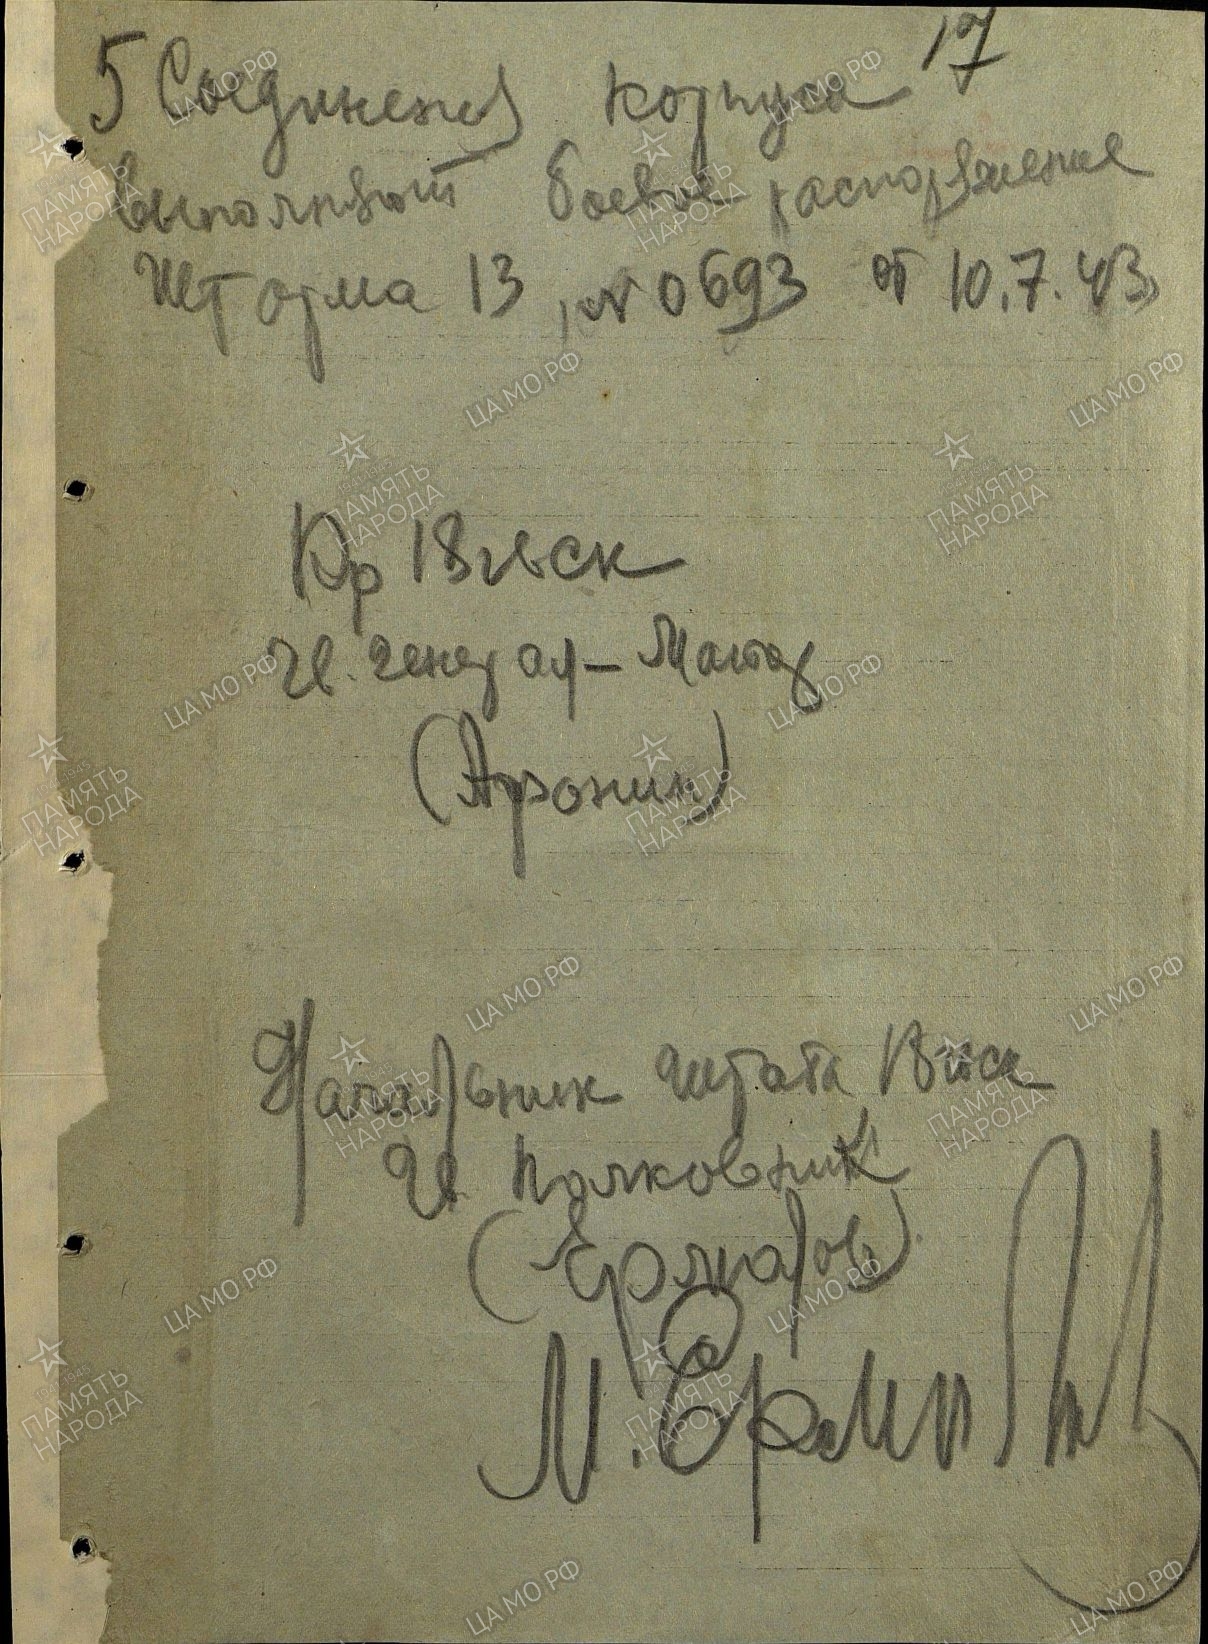 17
5 Соединения корпуса
выполняют боевое распоряжение
Шторма 13, № 0693 от 10.7.43,
Кр 18 гв ск
гв. генерал - Майор
(Афонин)
Начальник штаба 18 гв ск
гв. Полковник
(
М.
ЦА МО РФ
ПАМЯТЬ
НАРОДА